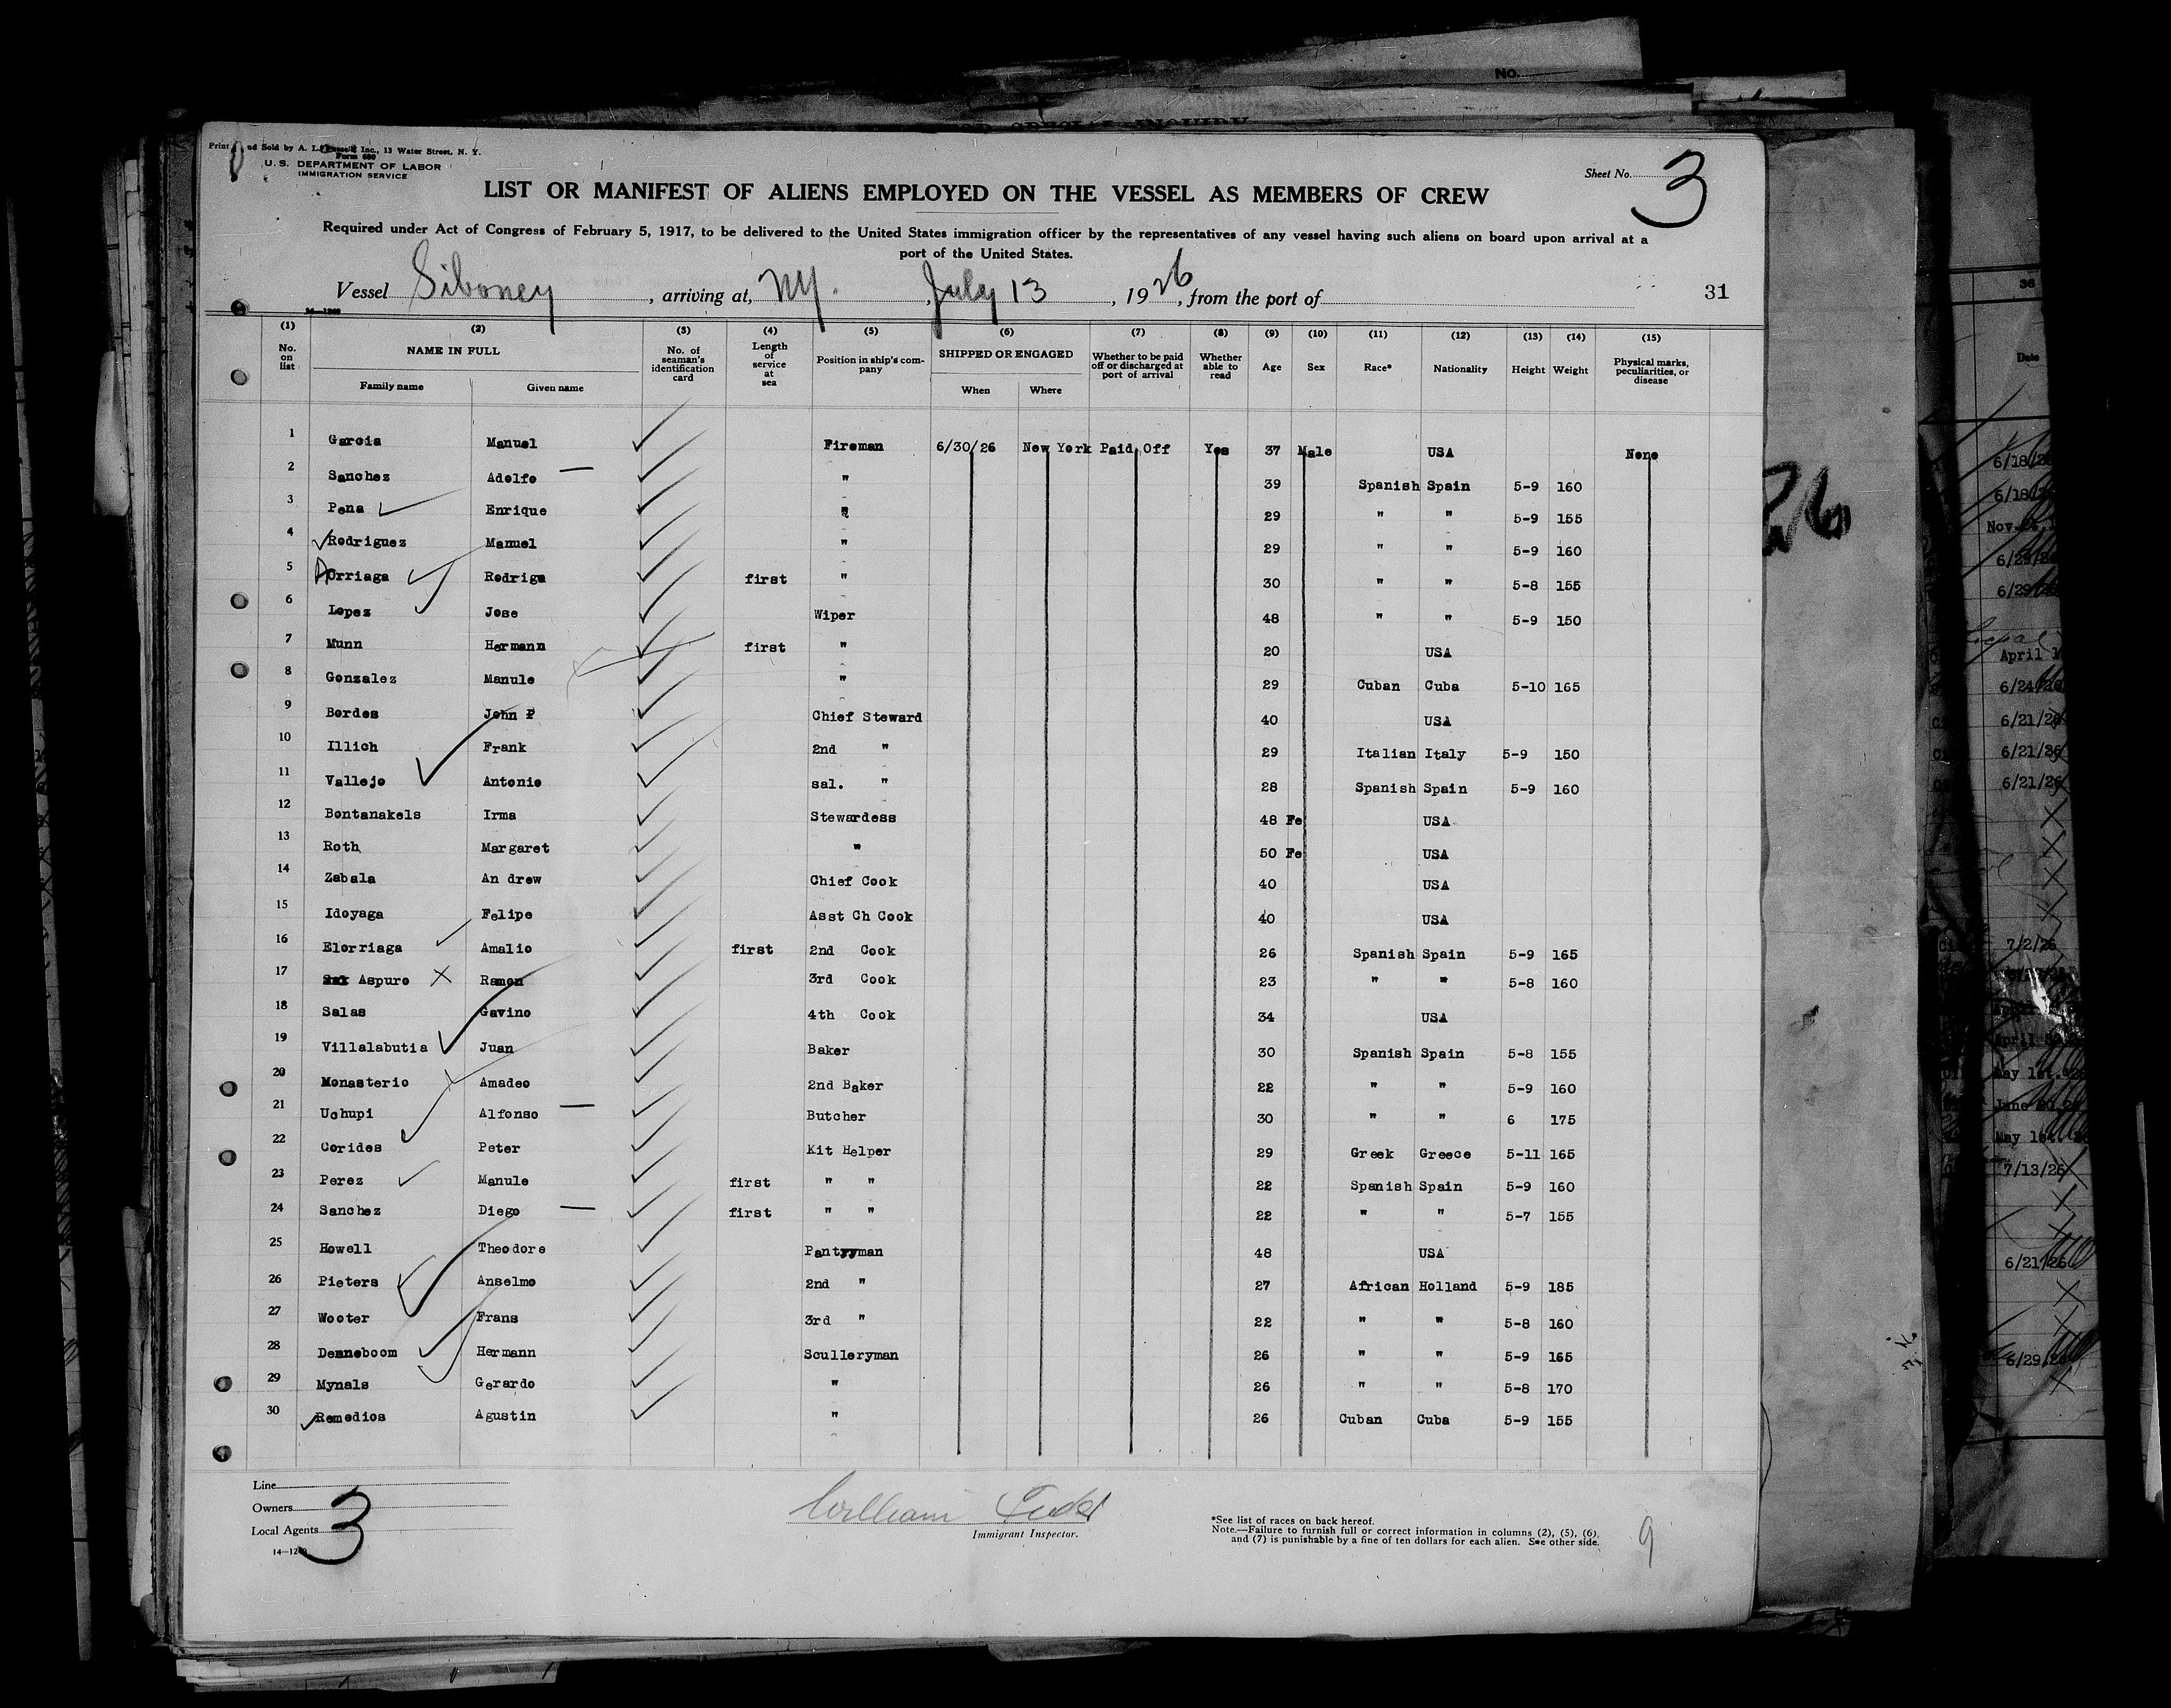 Print and Sold by A. L. Russell Inc., 13 Water Street, N. Y.
Form 680
U. S. DEPARTMENT OF LABOR
IMMIGRATION SERVICE
Sheet No. 3
LIST OR MANIFEST OF ALIENS EMPLOYED ON THE VESSEL AS MEMBERS OF CREW
Required under Act of Congress of February 5, 1917, to be delivered to the United States immigration officer by the representatives of any vessel having such aliens on board upon arrival at a
port of the United States.
Vessel Siboney, arriving at, NY. July 13, 1926, from the port of 31
(1) (2) (3) (4) (5) (6) (7) (8) (9) (10) (11) (12) (13) (14) (15)
No. on list NAME IN FULL Family name Given name No. of seaman's identification card Length of service at sea Position in ship's company SHIPPED OR ENGAGED When Where Whether to be paid off or discharged at port of arrival Whether able to read Age Sex Race* Nationality Height Weight Physical marks, peculiarities, or disease
1 Garcia Manuel Fireman 6/30/26 New York Paid Off Yes 37 Male USA None
2 Sanchez Adolfo " 39 Spanish Spain 5-9 160
3 Pena Enrique " 29 " " 5-9 155
4 Rodriguez Manuel " 29 " " 5-9 160
5 Orriaga Rodrigo first " 30 " " 5-8 155
6 Lopez Jose Wiper 48 " " 5-9 150
7 Munn Hermann first " 20 USA
8 Gonzalez Manule " 29 Cuban Cuba 5-10 165
9 Bordes John P Chief Steward 40 USA
10 Illich Frank 2nd " 29 Italian Italy 5-9 150
11 Vallejo Antonio sal. " 28 Spanish Spain 5-9 160
12 Bontanakels Irma Stewardess 48 Fe USA
13 Roth Margaret " 50 Fe USA
14 Zabala An drew Chief Cook 40 USA
15 Idoyaga Felipe Asst Ch Cook 40 USA
16 Elorriaga Amalio first 2nd Cook 26 Spanish Spain 5-9 165
17 Aspuro Ramon 3rd Cook 23 " " 5-8 160
18 Salas Gavino 4th Cook 34 USA
19 Villalabutia Juan Baker 30 Spanish Spain 5-8 155
20 Monasterio Amadeo 2nd Baker 22 " " 5-9 160
21 Uchupi Alfonso Butcher 30 " " 6 175
22 Corides Peter Kit Helper 29 Greek Greece 5-11 165
23 Perez Manule first " " 22 Spanish Spain 5-9 160
24 Sanchez Diego first " " 22 " " 5-7 155
25 Howell Theodore Pantyyman 48 USA
26 Pieters Anselmo 2nd " 27 African Holland 5-9 185
27 Wooter Frans 3rd " 22 " " 5-8 160
28 Denneboom Hermann Sculleryman 26 " " 5-9 165
29 Mynals Gerardo " 26 " " 5-8 170
30 Remedios Agustin " 26 Cuban Cuba 5-9 155
Line
Owners
Local Agents 3
14—1240
William
Immigrant Inspector.
*See list of races on back hereof.
Note.—Failure to furnish full or correct information in columns (2), (5), (6),
and (7) is punishable by a fine of ten dollars for each alien. See other side.
9
No.
36
Date
April 1
6/24/26
6/21/26
6/21/26
6/21/26
7/2/26
7/13/26
6/21/26
6/29/26